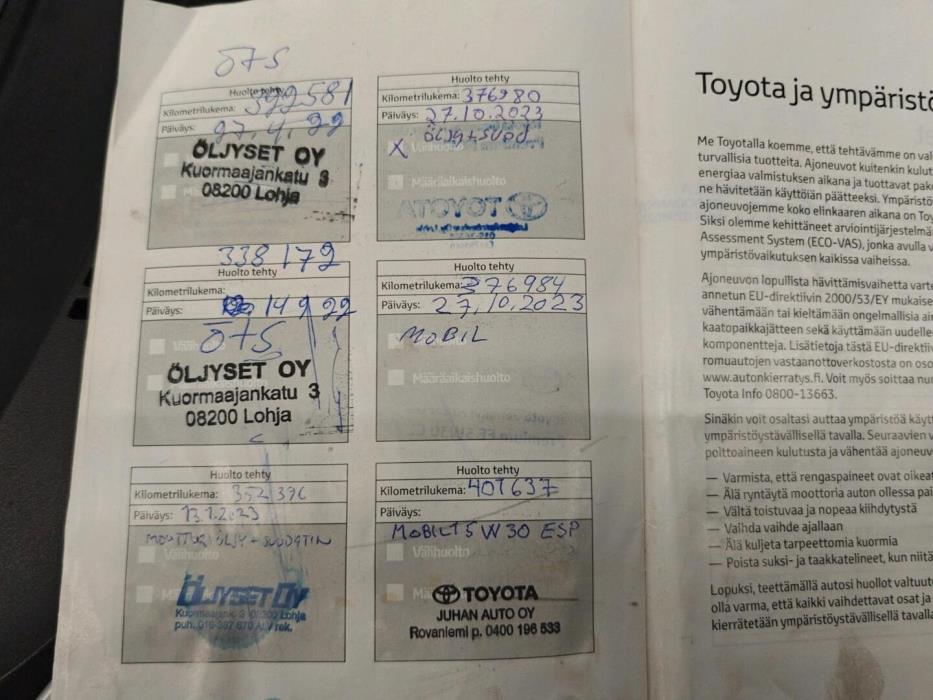 ÖTS
Huolto tehty
Kilometrilukema: 322581
Päiväys: 27.4.22
ÖLJYSET OY
Kuormaajankatu 3
08200 Lohja
338172
Huolto tehty
Kilometrilukema:
Päiväys: 14 9 22
ÖTS
ÖLJYSET OY
Kuormaajankatu 3
08200 Lohja
Huolto tehty
Kilometrilukema: 352396
Päiväys: 13.1.2023
MOOTTORIÖLJY + SUODATIN
Välihuolto
ÖLJYSET OY
Kuormaajank. 3 08200 Lohja
Huolto tehty
Kilometrilukema: 376980
Päiväys: 27.10.2023
X
Määräaikaishuolto
TOYOTA
Huolto tehty
Kilometrilukema: 376984
Päiväys: 27.10.2023
MOBIL
Määräaikaishuolto
Huolto tehty
Kilometrilukema: 401637
Päiväys:
MOBIL 1 5W30 ESP
Välihuolto
TOYOTA
JUHAN AUTO OY
Rovaniemi p. 0400 196 533
Toyota ja ympäristö
Me Toyotalla koemme, että tehtävämme on val
turvallisia tuotteita. Ajoneuvot kuitenkin kulut
energiaa valmistuksen aikana ja tuottavat pak
ne hävitetään käyttöiän päätteeksi. Ympäristö
ajoneuvojemme koko elinkaaren aikana on Toy
Siksi olemme kehittäneet arviointijärjestelmä
Assessment System (ECO-VAS), jonka avulla v
ympäristövaikutuksen kaikissa vaiheissa.
Ajoneuvon lopullista hävittämisvaihetta varte
annetun EU-direktiivin 2000/53/EY mukaise
vähentämään tai kieltämään ongelmallisia ai
kaatopaikkajätteen sekä käyttämään uudelle
komponentteja. Lisätietoja tästä EU-direktiiv
romuautojen vastaanottoverkostosta on oso
www.autonkierratys.fi. Voit myös soittaa nur
Toyota Info 0800-13663.
Sinäkin voit osaltasi auttaa ympäristöä käytt
ympäristöystävällisellä tavalla. Seuraavien v
polttoaineen kulutusta ja vähentää ajoneuv
— Varmista, että rengaspaineet ovat oikeat
— Älä ryntäytä moottoria auton ollessa pai
— Vältä toistuvaa ja nopeaa kiihdytystä
— Vaihda vaihde ajallaan
— Älä kuljeta tarpeettomia kuormia
— Poista suksi- ja taakkatelineet, kun niitä
Lopuksi, teettämällä autosi huollot valtuute
olla varma, että kaikki vaihdettavat osat ja
kierrätetään ympäristöystävällisellä tavalla